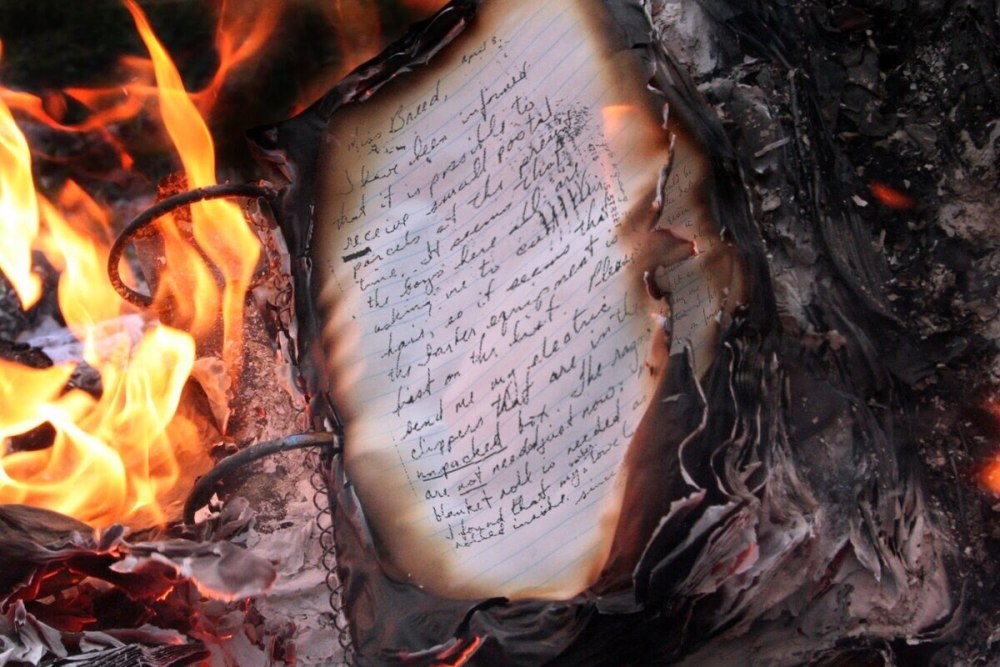 April 3,
Miss Breed,
I have been informed
that it is possible to
receive small postal
parcels at the present
time. It seems that
the boys here are
asking me to cut
hair, so it seems that
the barber equipment is
first on the list. Please
send me my electric
clippers that are in the
unpacked box. The
are not needed just now.
blanket roll is needed as
I found that my
rolled inside.